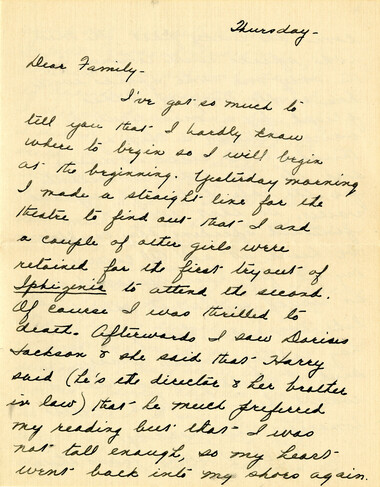 Thursday-
Dear Family-
I've got so much to
tell you that I hardly know
where to begin so I will begin
at the beginning. Yesterday morning
I made a straight line for the
theatre to find out that I and
a couple of other girls were
retained for the first tryout of
Iphigenie to attend the second.
Of course I was thrilled to
death. Afterwards I saw
Jackson & she said that Harry
said (he's the director & her brother
in law) that he much preferred
my reading but that I was
not tall enough, so my heart
went back into my shoes again.